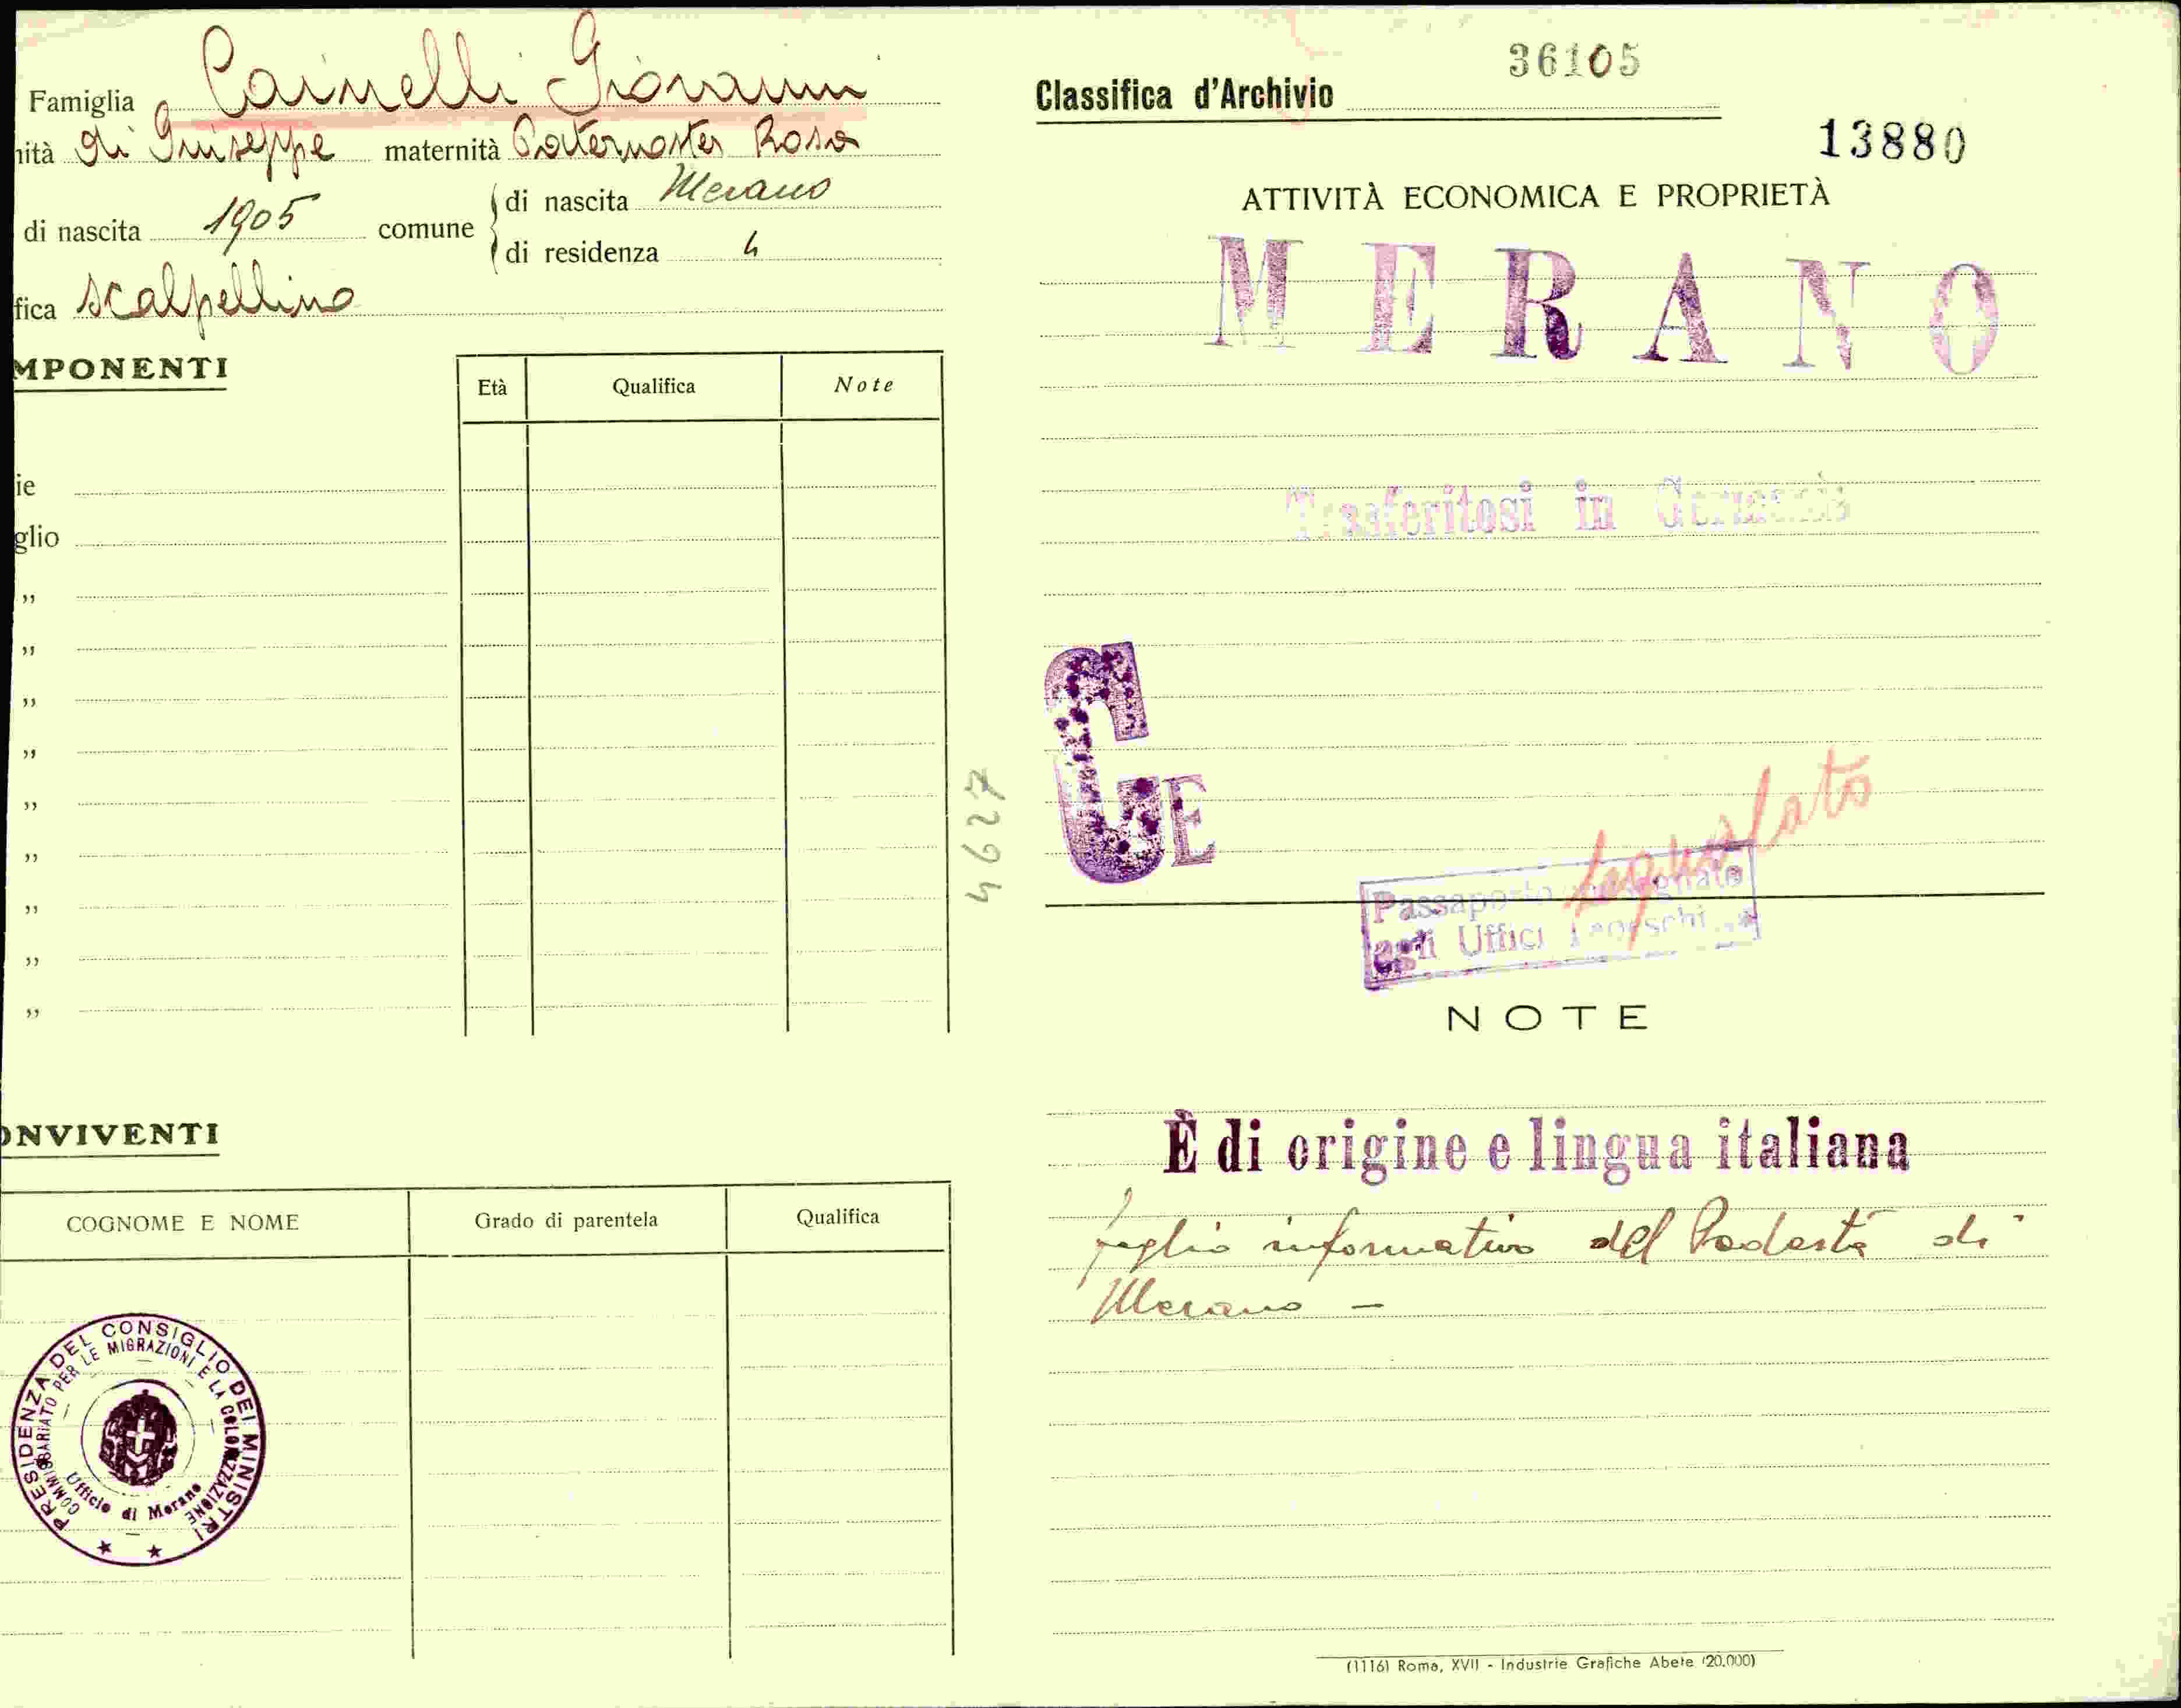 Famiglia Cainelli Giovanni
nità di Giuseppe maternità Paternoster Rosa
di nascita 1905 comune di nascita Merano
di residenza "
fica scalpellino
MPONENTI
Età Qualifica Note
ie
glio
"
"
"
"
"
"
"
"
"
ONVIVENTI
COGNOME E NOME Grado di parentela Qualifica
PRESIDENZA DEL CONSIGLIO DEI MINISTRI
COMMISSARIATO PER LE MIGRAZIONI E LA COLONIZZAZIONE
Ufficio di Merano
4627
36105
Classifica d'Archivio
13880
ATTIVITÀ ECONOMICA E PROPRIETÀ
MERANO
Trasferitosi in Germania
GE
Passaporto consegnato
agli Uffici Tedeschi
NOTE
È di origine e lingua italiana
foglio informativo del Podestà di
Merano -
(1116) Roma, XVII - Industrie Grafiche Abete (20.000)